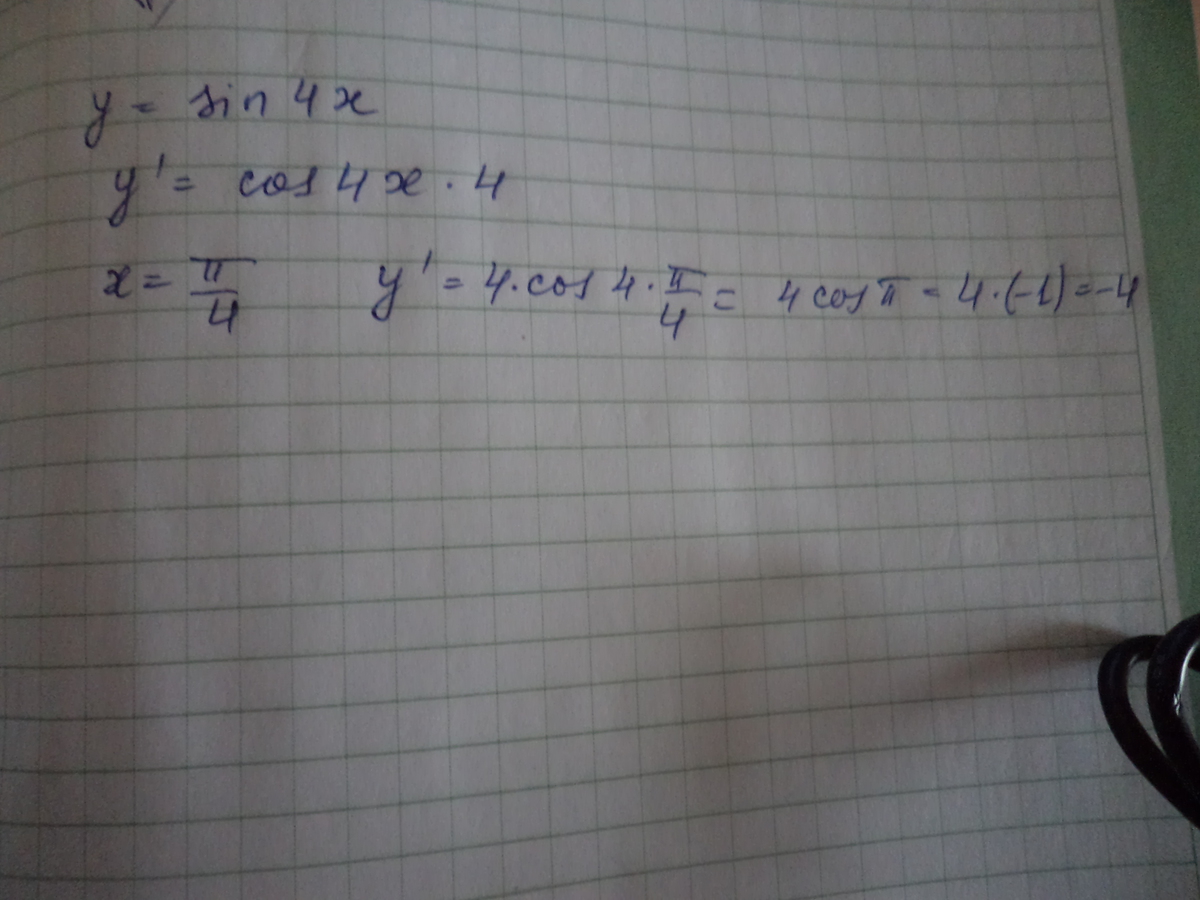 y = sin 4x
y' = cos 4x · 4
x = π/4 y' = 4·cos 4·π/4 = 4 cos π = 4·(-1) = -4